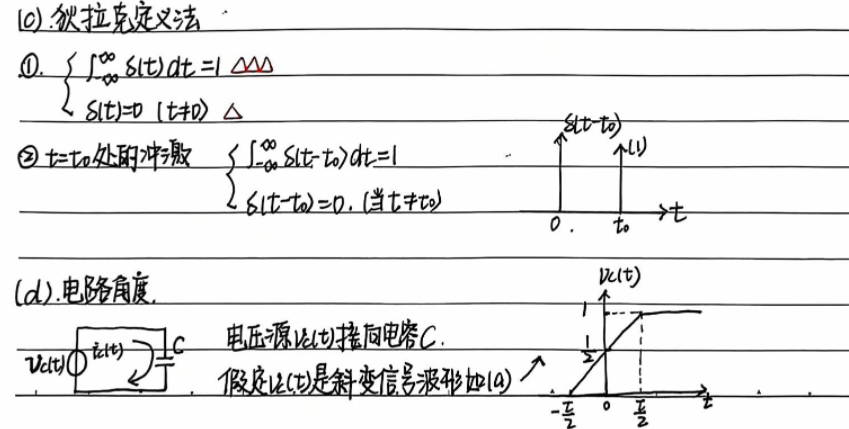 (c).狄拉克定义法
①. { ∫_{-∞}^{∞} δ(t) dt = 1 △△△
δ(t)=0 (t≠0) △
② t=t₀处的冲激 { ∫_{-∞}^{∞} δ(t-t₀) dt = 1
δ(t-t₀)=0. (当t≠t₀)
δ(t-t₀)
(1)
0. t₀ t
(d).电路角度.
vc(t) ic(t) C
电压源vc(t)接向电容C.
假定vc(t)是斜变信号波形如(a)
vc(t)
1
1/2
-τ/2 0 τ/2 t